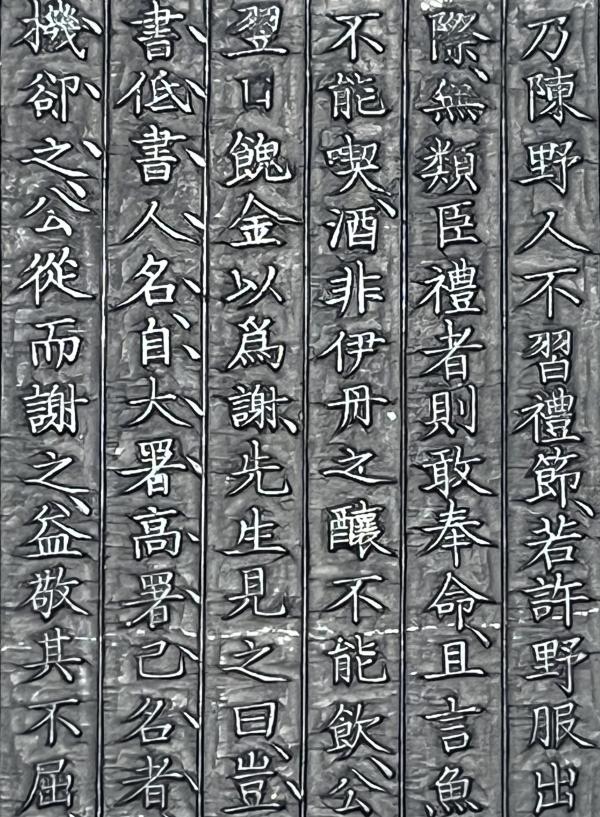 乃陳野人不習禮節、若許野服出
際、無類臣禮者則敢奉命、且言魚
不能喫、酒非伊丹之釀不能飲、公
翌日餽金以爲謝、先生見之曰、豈、
書、低、書、人、名、自、大、署、高、署、己、名、者、
機、卻、之、公、從而謝之、益敬其不屈